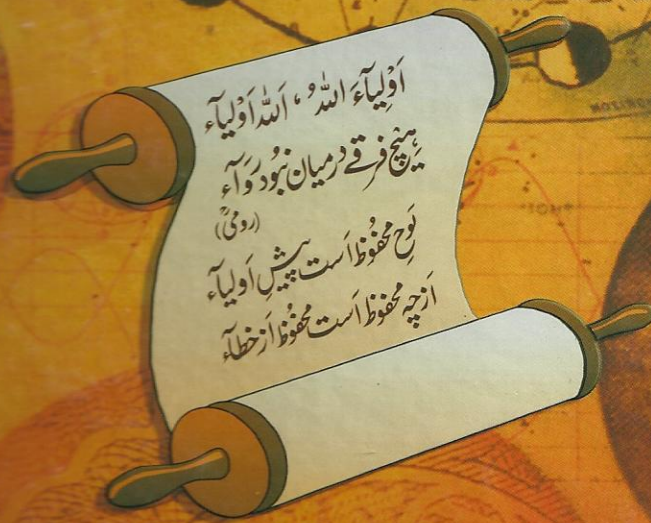 اَوْلِیآءَ اللہُ ، اَللہ اَوْلیآء
ہیچ فرقے درمیان نبُود رَوَآء
(رومیؒ)
لَوحِ محفُوظ اَست پیشِ اَولیآء
اَزچہ محفوظ اَست محفُوظ اَز خطآء